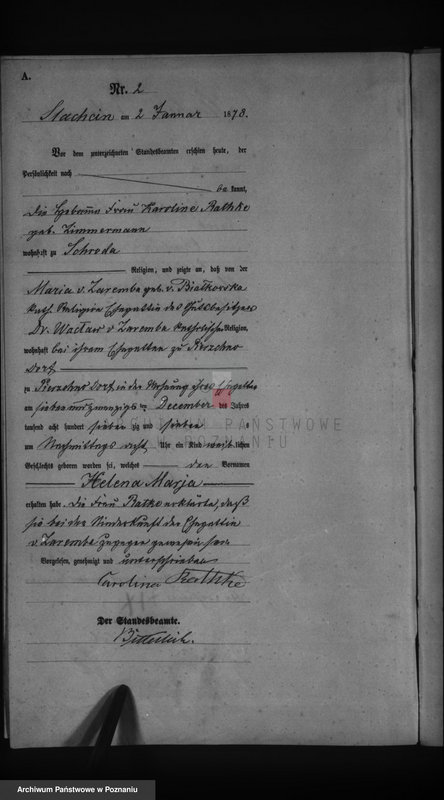 A.
Nr. 2
am 2 Januar 1878.
Vor dem unterzeichneten Standesbeamten erschien heute, der
Persönlichkeit nach
bekannt,
die Hebamme Frau Karoline Rathke
geb. Zimmermann
wohnhaft zu Schroda
Religion, und zeigte an, daß von der
Maria v. Zaremba geb. v. Białkowska
kath. Religion Ehegattin des Gutsbesitzers
Dr. Wacław v Zaremba katholischer Religion,
wohnhaft bei ihrem Ehegatten zu Pierzchno
Dorf
zu Pierzchno Dorf in der Wohnung ihres Ehegatten
am sieben und zwanzigsten December des Jahres
tausend acht hundert siebenzig und sieben
um Nachmittags acht Uhr ein Kind weiblichen
Geschlechts geboren worden sei, welches den Vornamen
Helena Marja
erhalten habe. Die Frau Rathke erklärte, daß
sie bei der Niederkunft der Ehegattin
v. Zaremba zugegen gewesen sei.
Vorgelesen, genehmigt und unterschrieben
Carolina Rathke
Der Standesbeamte.
ARCHIWUM PAŃSTWOWE
W POZNANIU
Archiwum Państwowe w Poznaniu